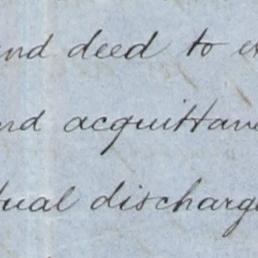 and deed to e
and acquittan
tual discharg